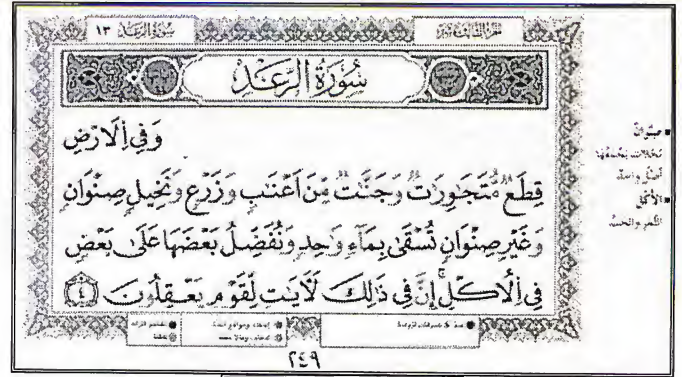 الجزء الثالث عشر
سُورَةُ الرَّعْدِ ١٣
سُورَةُ الرَّعْدِ
وَفِي اِلَارْضِ
قِطَعٌ مُّتَجَٰوِرَٰتٌ وَجَنَّٰتٌ مِّنَ اَعْنَٰبٍ وَزَرْعٍ وَنَخِيلٍ صِنْوَانٍ
وَغَيْرِ صِنْوَانٍ تُسْقَىٰ بِمَآءٍ وَٰحِدٍ وَنُفَضِّلُ بَعْضَهَا عَلَىٰ بَعْضٍ
فِي اِلُاكْلِ إِنَّ فِي ذَٰلِكَ لَأٓيَٰتٍ لِّقَوْمٍ يَعْقِلُونَ ٤
■ صنوانٌ
نخلات يجمعها
أصلٌ واحدٌ
■ الأُكُل
الثمر والحبّ
٢٤٩